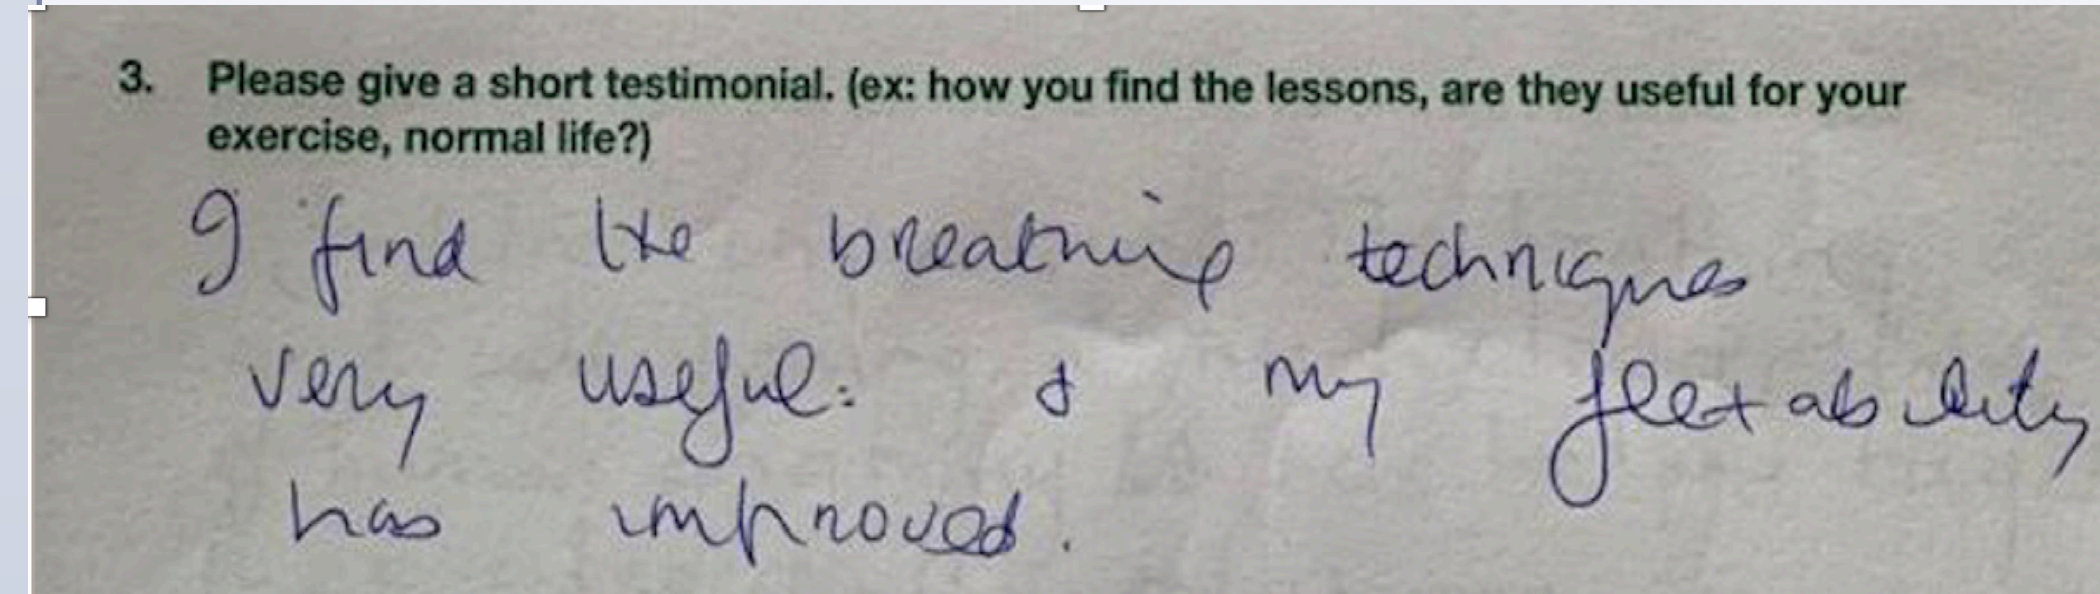 3. Please give a short testimonial. (ex: how you find the lessons, are they useful for your
exercise, normal life?)
I find the breathing techniques
very useful: & my flexability
has improved.